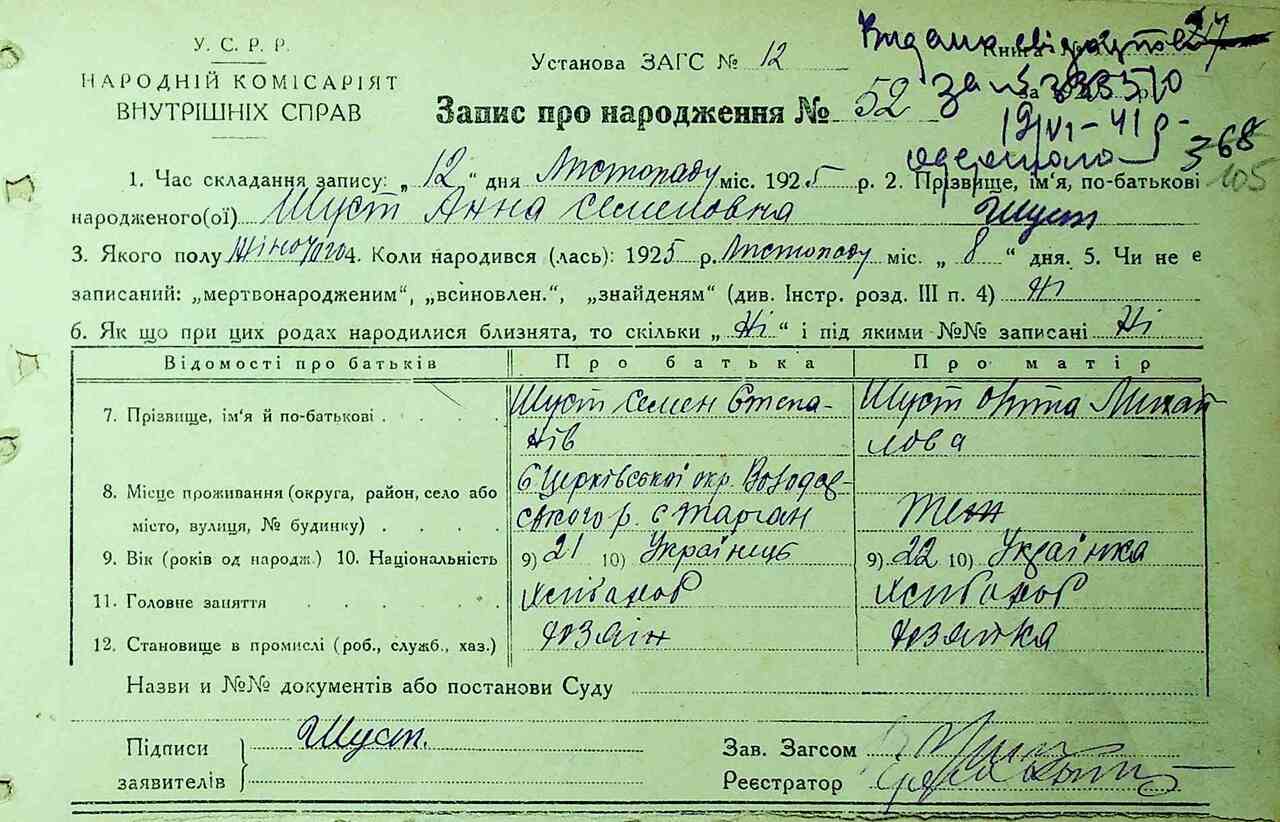 У. С. Р. Р.
НАРОДНІЙ КОМІСАРІЯТ
ВНУТРІШНІХ СПРАВ
Установа ЗАГС № 12
Книга №
Видано свідоцтво
за №
19/VI-41 р.
368
105
Запис про народження № 52 за р.
1. Час складання запису: „ 12 “ дня Листопаду міс. 1925 р. 2. Прізвище, ім'я, по-батькові
народженого(ої) Шуст Анна Семеновна Шуст
3. Якого полу Жіночого 4. Коли народився (лась): 1925 р. Листопаду міс. „ 8 “ дня. 5. Чи не є
записаний: „мертвонародженим“, „всиновлен.“, „знайденям“ (див. Інстр. розд. III п. 4) Ні
6. Як що при цих родах народилися близнята, то скільки „ Ні “ і під якими №№ записані Ні
Відомості про батьків Про батька Про матір
7. Прізвище, ім'я й по-батькові . . . . Шуст Семен Степа- Шуст Михай
нів лова
8. Місце проживання (округа, район, село або Б Церківської окр. Володар-
місто, вулиця, № будинку) . . . . ського р. с Тарган теж
9. Вік (років од народж.) 10. Національність 9) 21 10) Українець 9) 22 10) Українка
11. Головне заняття . . . . . Хлібороб Хлібороб
12. Становище в промислі (роб., служб., хаз.) Хазяін Хазяйка
Назви и №№ документів або постанови Суду
Підписи
заявителів
Шуст.
Зав. Загсом
Реєстратор